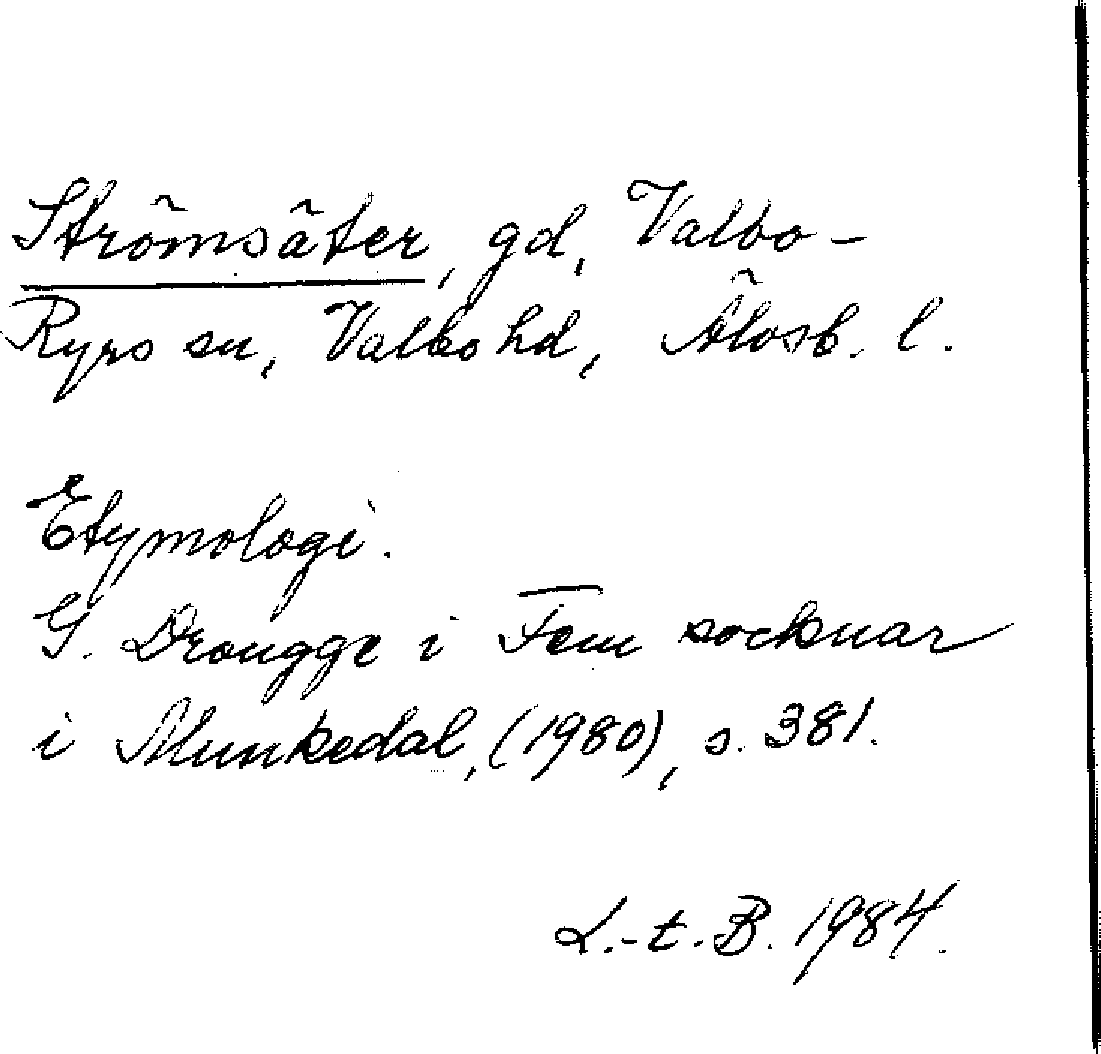 Strömsäter, gd, Valbo-
Ryrs sn, Valbo hd, Älvsb. l.
Etymologi.
G. Drougge i Fem socknar
i Munkedal, (1980), s. 381.
L.-t. B. 1984.